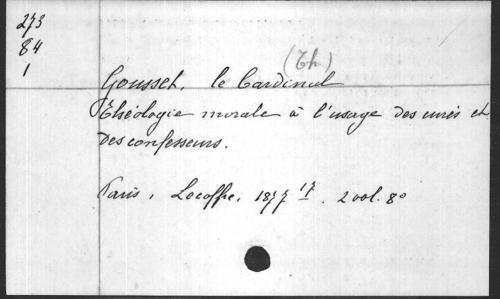 273
84
1
(Th)
Gousset, le Cardinal
Théologie morale à l'usage des curés et
des confesseurs.
Paris, Lecoffre, 1877 17. 2 vol. 8°